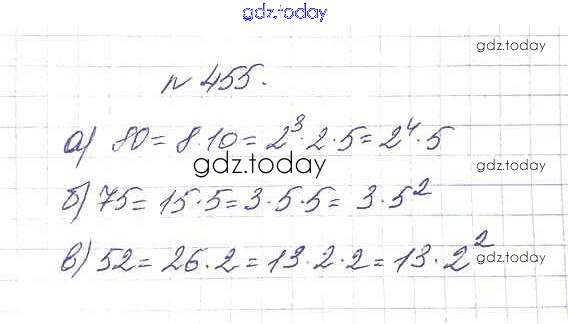 gdz.today
gdz.today
N 455.
а) 80 = 8 · 10 = 2³ · 2 · 5 = 2⁴ · 5
gdz.today
gdz.today
б) 75 = 15 · 5 = 3 · 5 · 5 = 3 · 5²
в) 52 = 26 · 2 = 13 · 2 · 2 = 13 · 2²
gdz.today